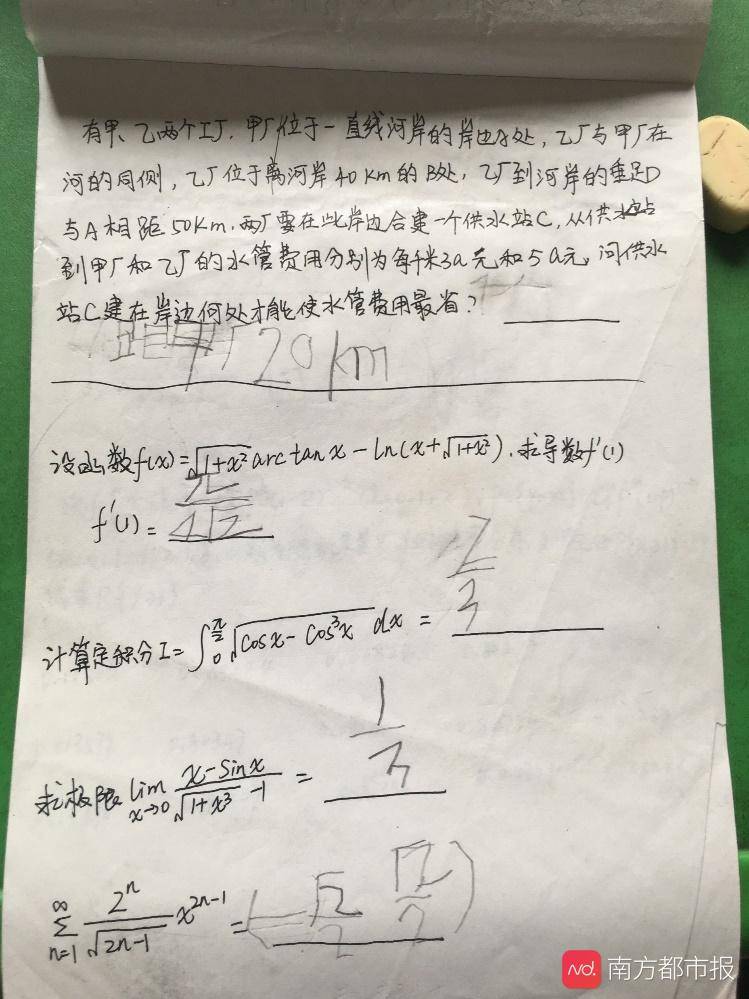 有甲、乙两个工厂,甲厂位于一直线河岸的岸边A处,乙厂与甲厂在
河的同侧,乙厂位于离河岸40km的B处,乙厂到河岸的垂足D
与A相距50km,两厂要在此岸边合建一个供水站C,从供水站
到甲厂和乙厂的水管费用分别为每千米3a元和5a元,问供水
站C建在岸边何处才能使水管费用最省?
20km
设函数f(x)=√(1+x²) arctanx-ln(x+√(1+x²)).求导数f'(1)
f'(1)= π/(4√2)
计算定积分I=∫₀^(π/2) √(cosx-cos³x) dx = 2/3
求极限 lim x→0 (x-sinx)/(√(1+x³)-1) = 1/3
∑ n=1 ∞ 2ⁿ/√(2n-1) x^(2n-1) = (-√2/2 √2/2)
Nd. 南方都市报